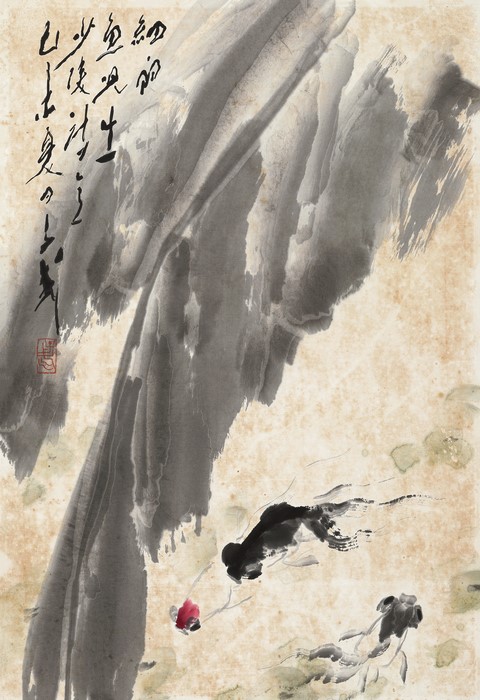 細雨
魚兒出
少陵詩意
己未夏日子武